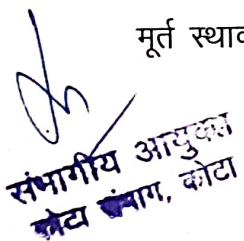 मूर्त स्थाव
संभागीय आयुक्त
कोटा संभाग, कोटा